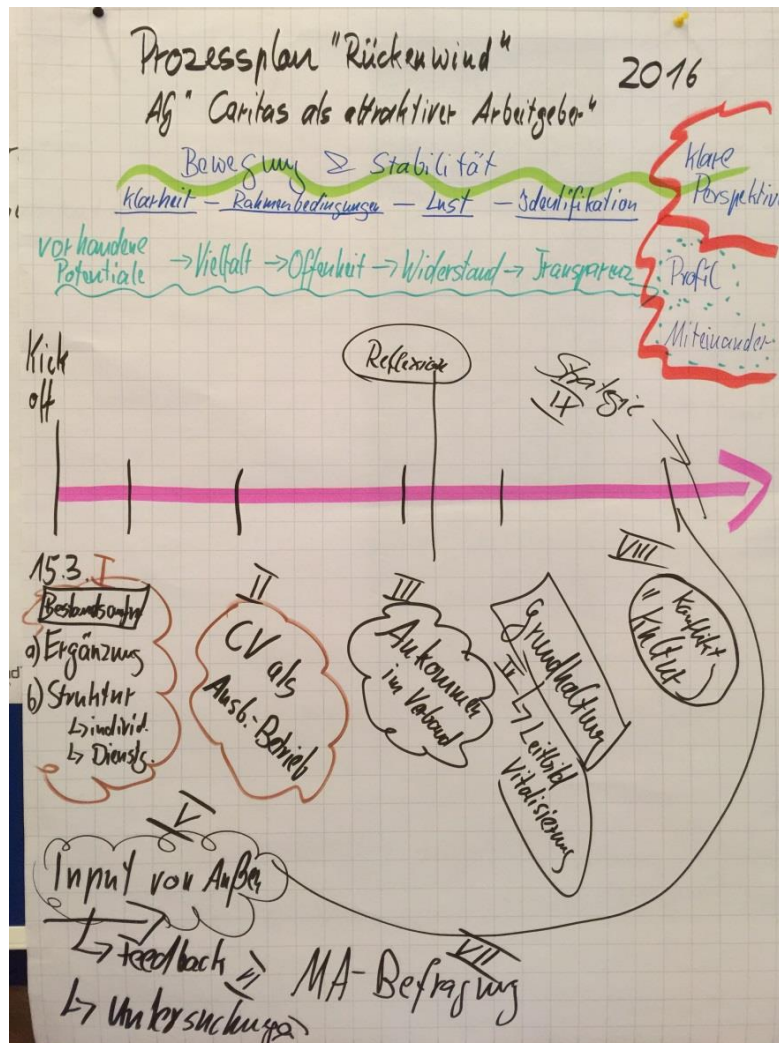 Prozessplan "Rückenwind"
2016
AG "Caritas als attraktiver Arbeitgeber"
Bewegung & Stabilität
Klarheit – Rahmenbedingungen – Lust – Identifikation
Klare
Perspektive
vorhandene
Potentiale → Vielfalt → Offenheit → Widerstand → Transparenz
Profil
Miteinander
Kick
off
Reflexion
Strategie
IX
15.3.
I
Bestandsaufn
a) Ergänzung
b) Struktur
↳ individ.
↳ Dienstg.
II
CV als
Ausb.-Betrieb
III
Ankommen
im Verband
Grundhaltung
IV
↳ Leitbild
Vitalisierung
VIII
Konflikt
"Kultur"
V
Input von Außen
↳ Feedback
↳ Untersuchungen
VII
MA-Befragung